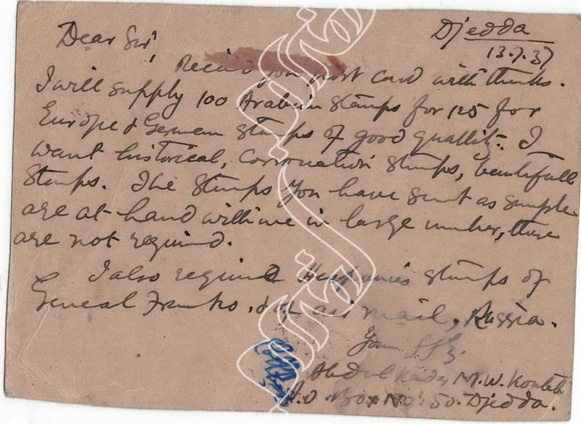 Djedda
13.7.37
Dear Sir,
Received your post card with thanks.
I will supply 100 Arabian stamps for 125 for
Europe & German stamps of good quallity. I
want historical, Corronation stamps, beautifull
stamps. The stamps you have sent as sample
are at hand with me in large number, there
are not required.
I also required stamps of
General Franko, & of air mail, Russia.
Yours
Abdul Kader M. W.
P.O. Box No. 50. Djedda.